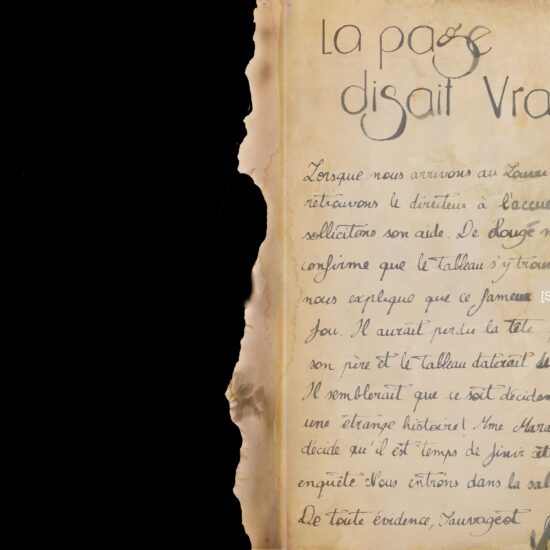 La page
disait Vra
Lorsque nous arrivons au Louvre
retrouvons le directeur à l'accue
sollicitons son aide. De Rougé n
confirme que le tableau s'y trouv
nous explique que ce fameux [S
fou. Il aurait perdu la tête
son père et le tableau daterait de
Il semblerait que ce soit décidem
une étrange histoire! Mme Mara
décide qu'il est temps de finir cet
enquête Nous entrons dans la sal
De toute évidence, Sauvageot